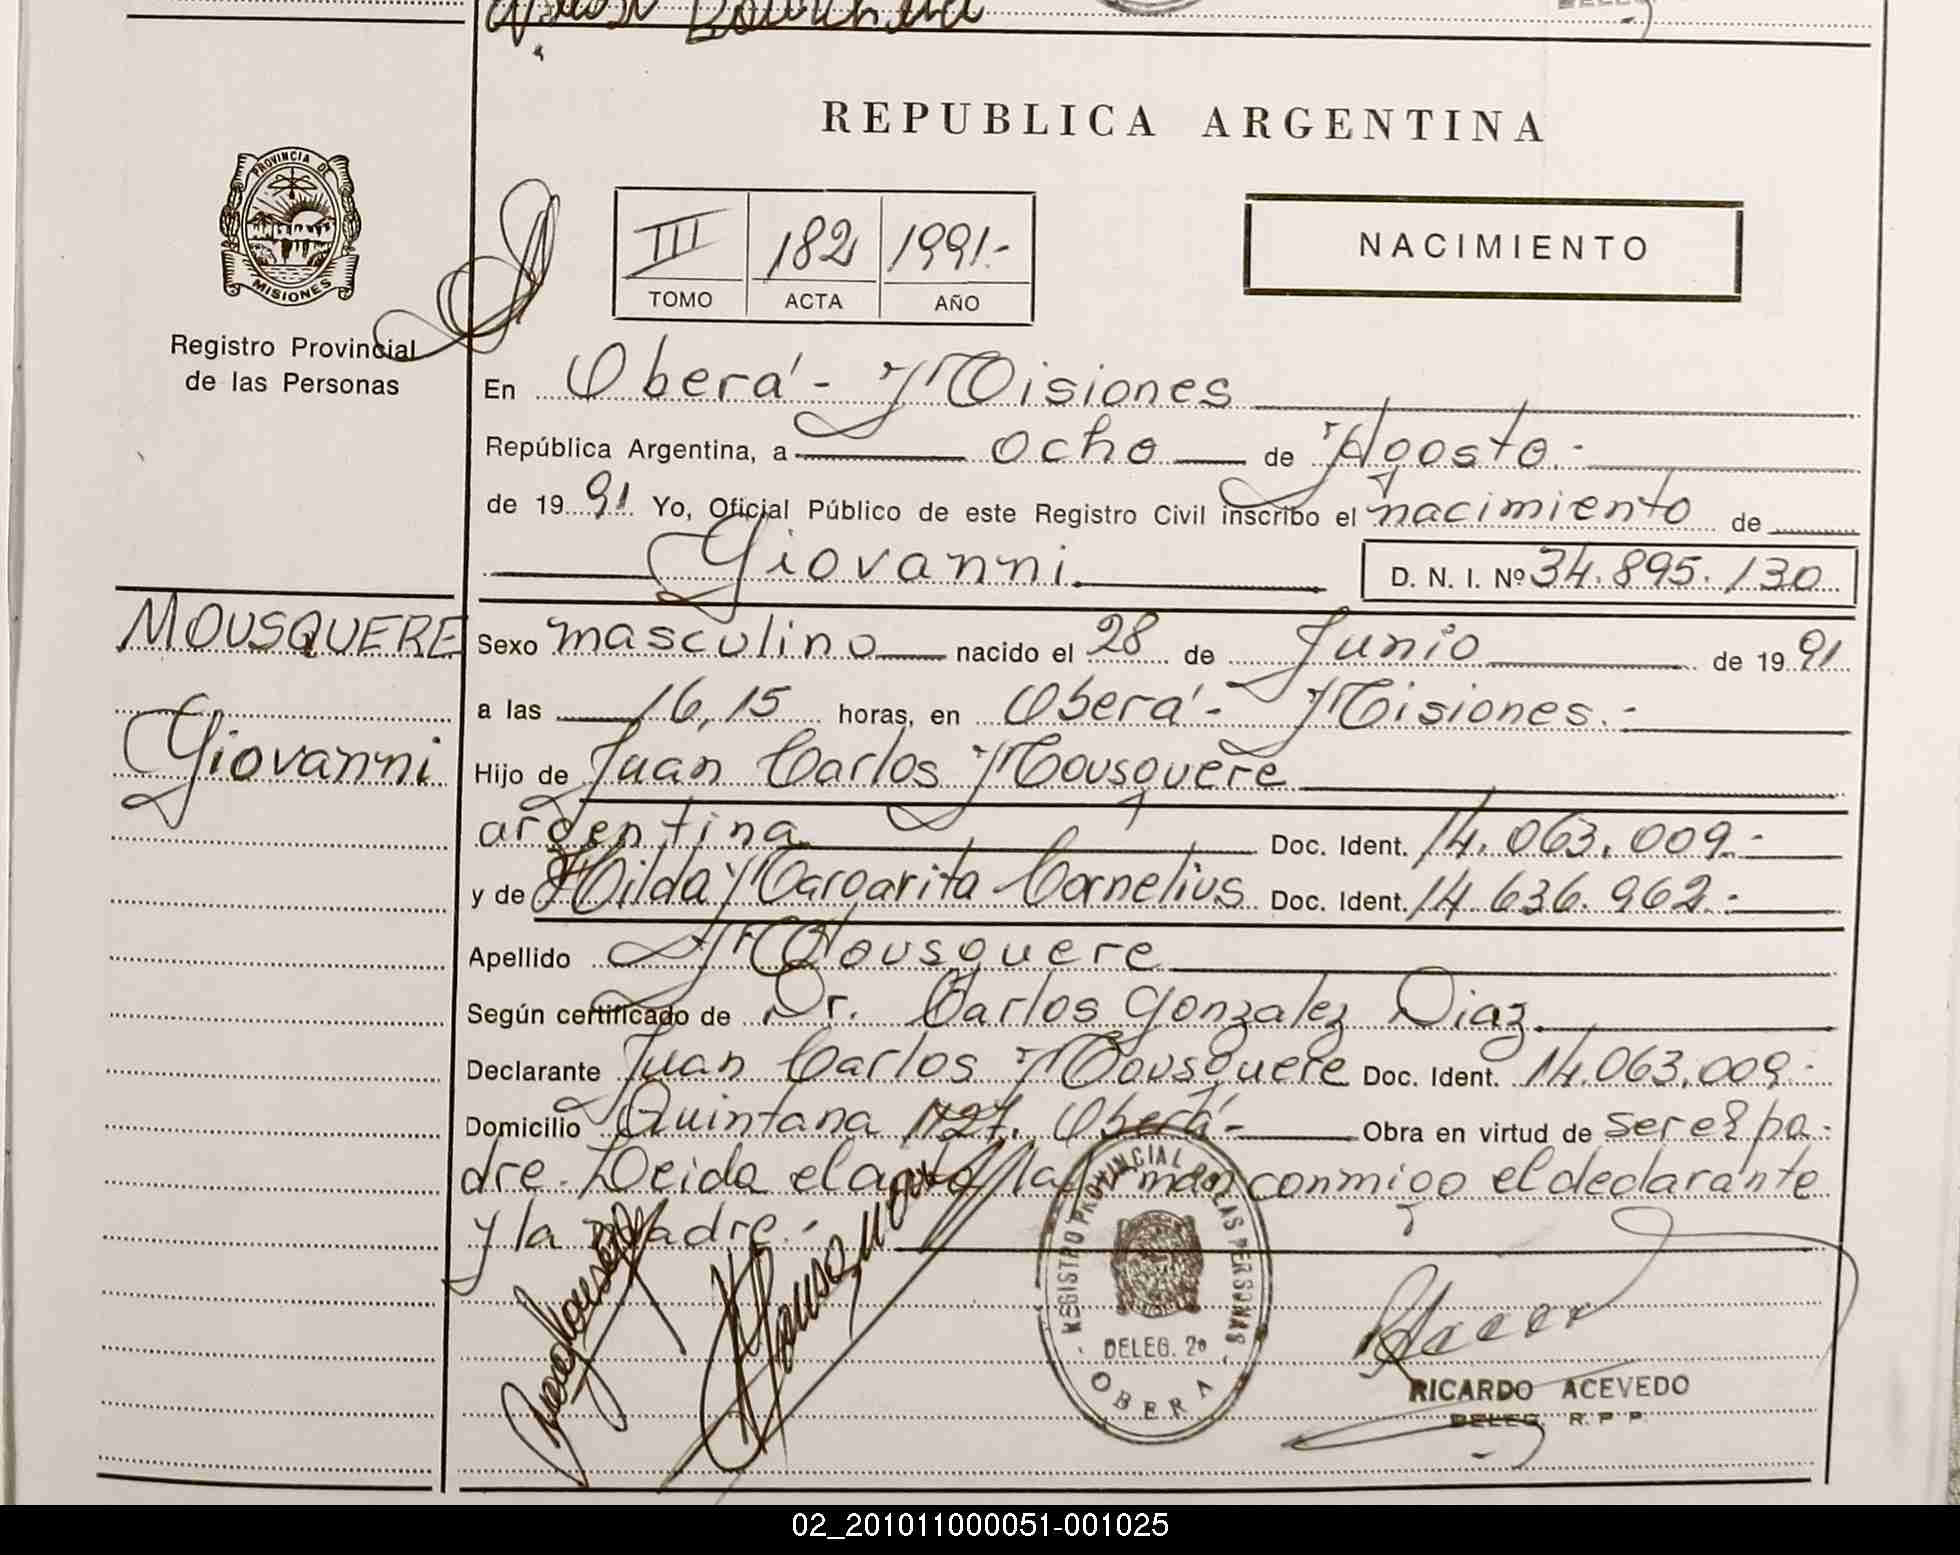 REPUBLICA ARGENTINA
PROVINCIA DE
MISIONES
Registro Provincial
de las Personas
III 182 1991.-
TOMO ACTA AÑO
NACIMIENTO
En Oberá - Misiones
República Argentina, a ocho de Agosto.-
de 1991 Yo, Oficial Público de este Registro Civil inscribo el nacimiento de
Giovanni
D. N. I. Nº 34.895.130
MOUSQUERE
Giovanni
Sexo masculino nacido el 28 de Junio de 1991
a las 16,15 horas, en Oberá - Misiones.-
Hijo de Juan Carlos Mousquere
argentina Doc. Ident. 14.063.009.-
y de Hilda Margarita Cornelius Doc. Ident. 14.636.962.-
Apellido Mousquere
Según certificado de Dr. Carlos Gonzalez Diaz.
Declarante Juan Carlos Mousquere Doc. Ident. 14.063.009.-
Domicilio Quintana Oberá - Obra en virtud de ser el pa-
dre. Leida el acta la firman conmigo el declarante
y la madre.-
REGISTRO PROVINCIAL DE LAS PERSONAS
DELEG. 2ª
OBERA
RICARDO ACEVEDO
DELEG. R. P. P.
02_201011000051-001025